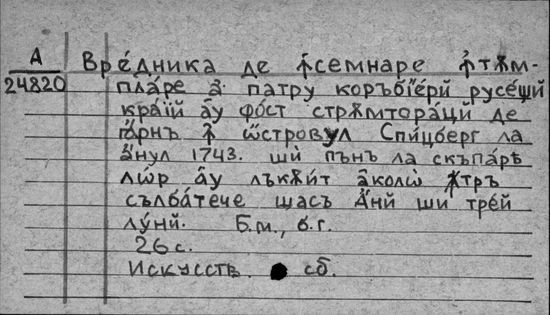 А
24820
Вре́дника де ꙟсемнаре ꙟтѫм-
пла́ре а҆ патру коръбїе́рй русе́щй
країй а҆у фо́ст стрѫмтора́цй де
гѣрнъ ꙟ ѡ҆стровул Спи́цберг ла
а҆́нул 1743. шѝ пънъ ла скъпа́рѣ
лѡ́р а҆у лъкѫи́т а҆колѡ̀ ꙟтръ
сълба́тече шасъ а҆́нй ши тре́й
лу́нй. Б.м., б.г.
26 с.
Искусств. сб.